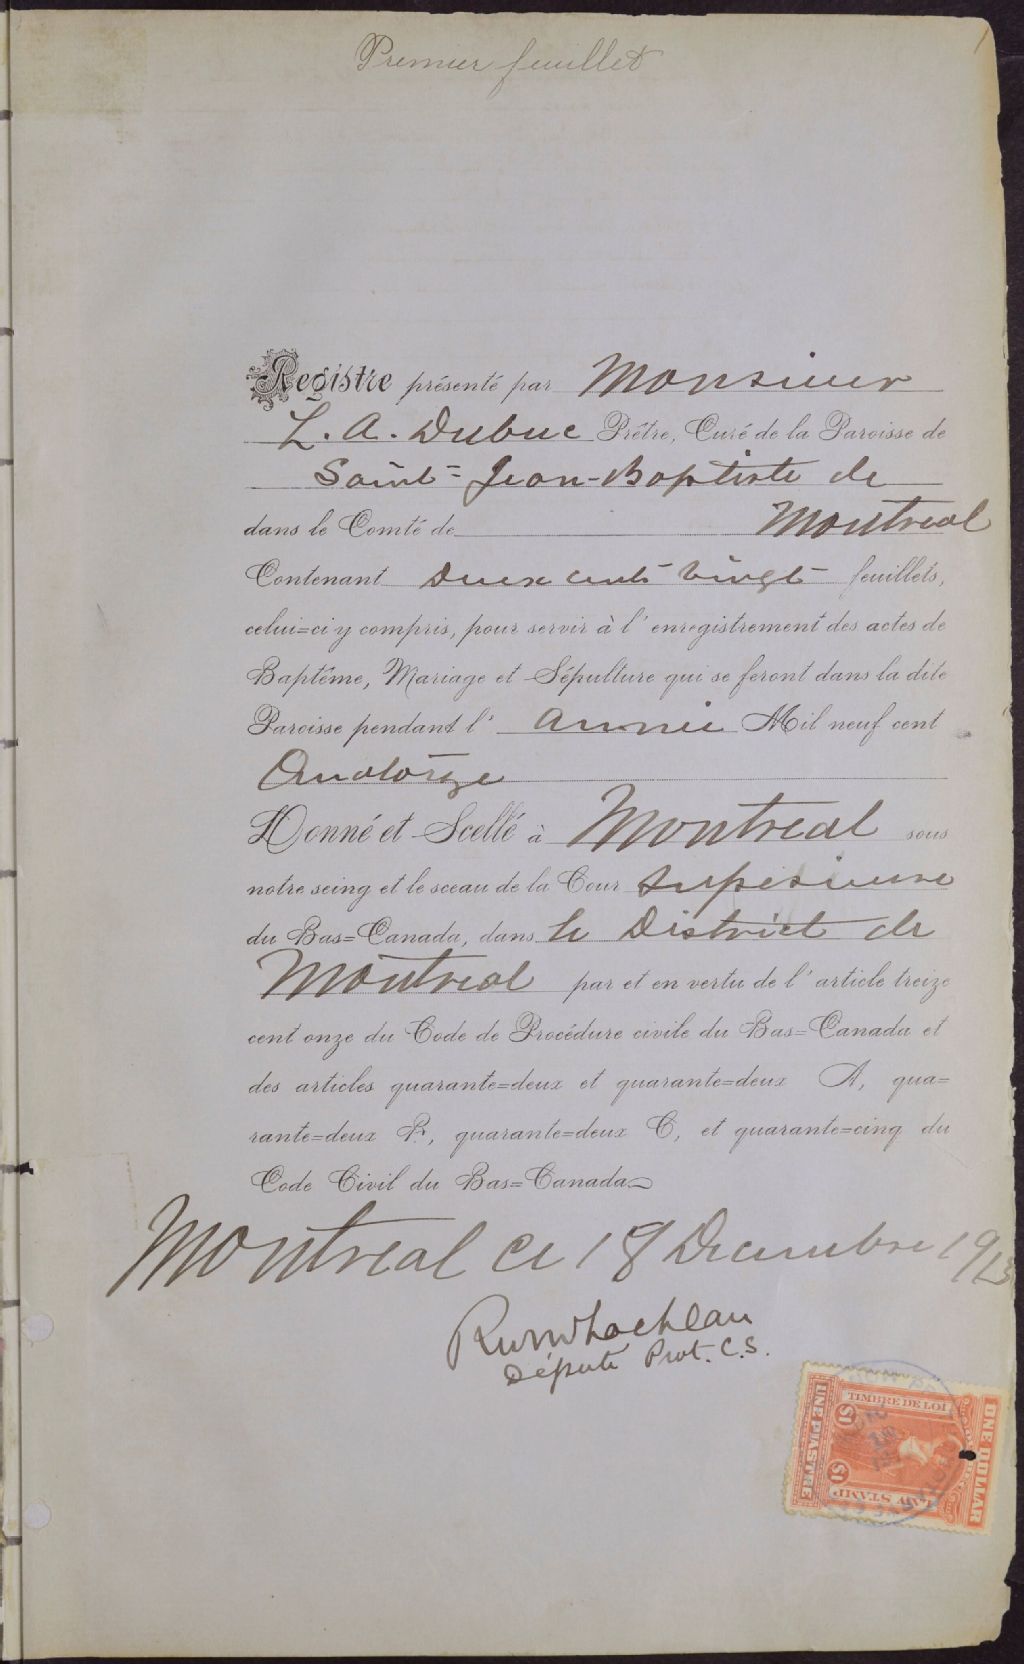 Premier feuillet
1
Registre présenté par Monsieur
L. A. Dubuc Prêtre, Curé de la Paroisse de
Saint-Jean-Baptiste de
dans le Comté de Montreal
Contenant Deux cents vingt feuillets,
celui=ci y compris, pour servir à l'enregistrement des actes de
Baptême, Mariage et Sépulture qui se feront dans la dite
Paroisse pendant l'année Mil neuf cent
Quatorze
Donné et Scellé à Montreal sous
notre seing et le sceau de la Cour Superieure
du Bas=Canada, dans le District de
Montreal par et en vertu de l'article treize
cent onze du Code de Procédure civile du Bas=Canada et
des articles quarante=deux et quarante=deux A, qua=
rante=deux B, quarante=deux C, et quarante=cinq du
Code Civil du Bas=Canada
Montreal ce 18 Decembre 1913
Député Prot. C.S.
TIMBRE DE LOI
ONE DOLLAR
UNE PIASTRE
$1
$1
LAW STAMP